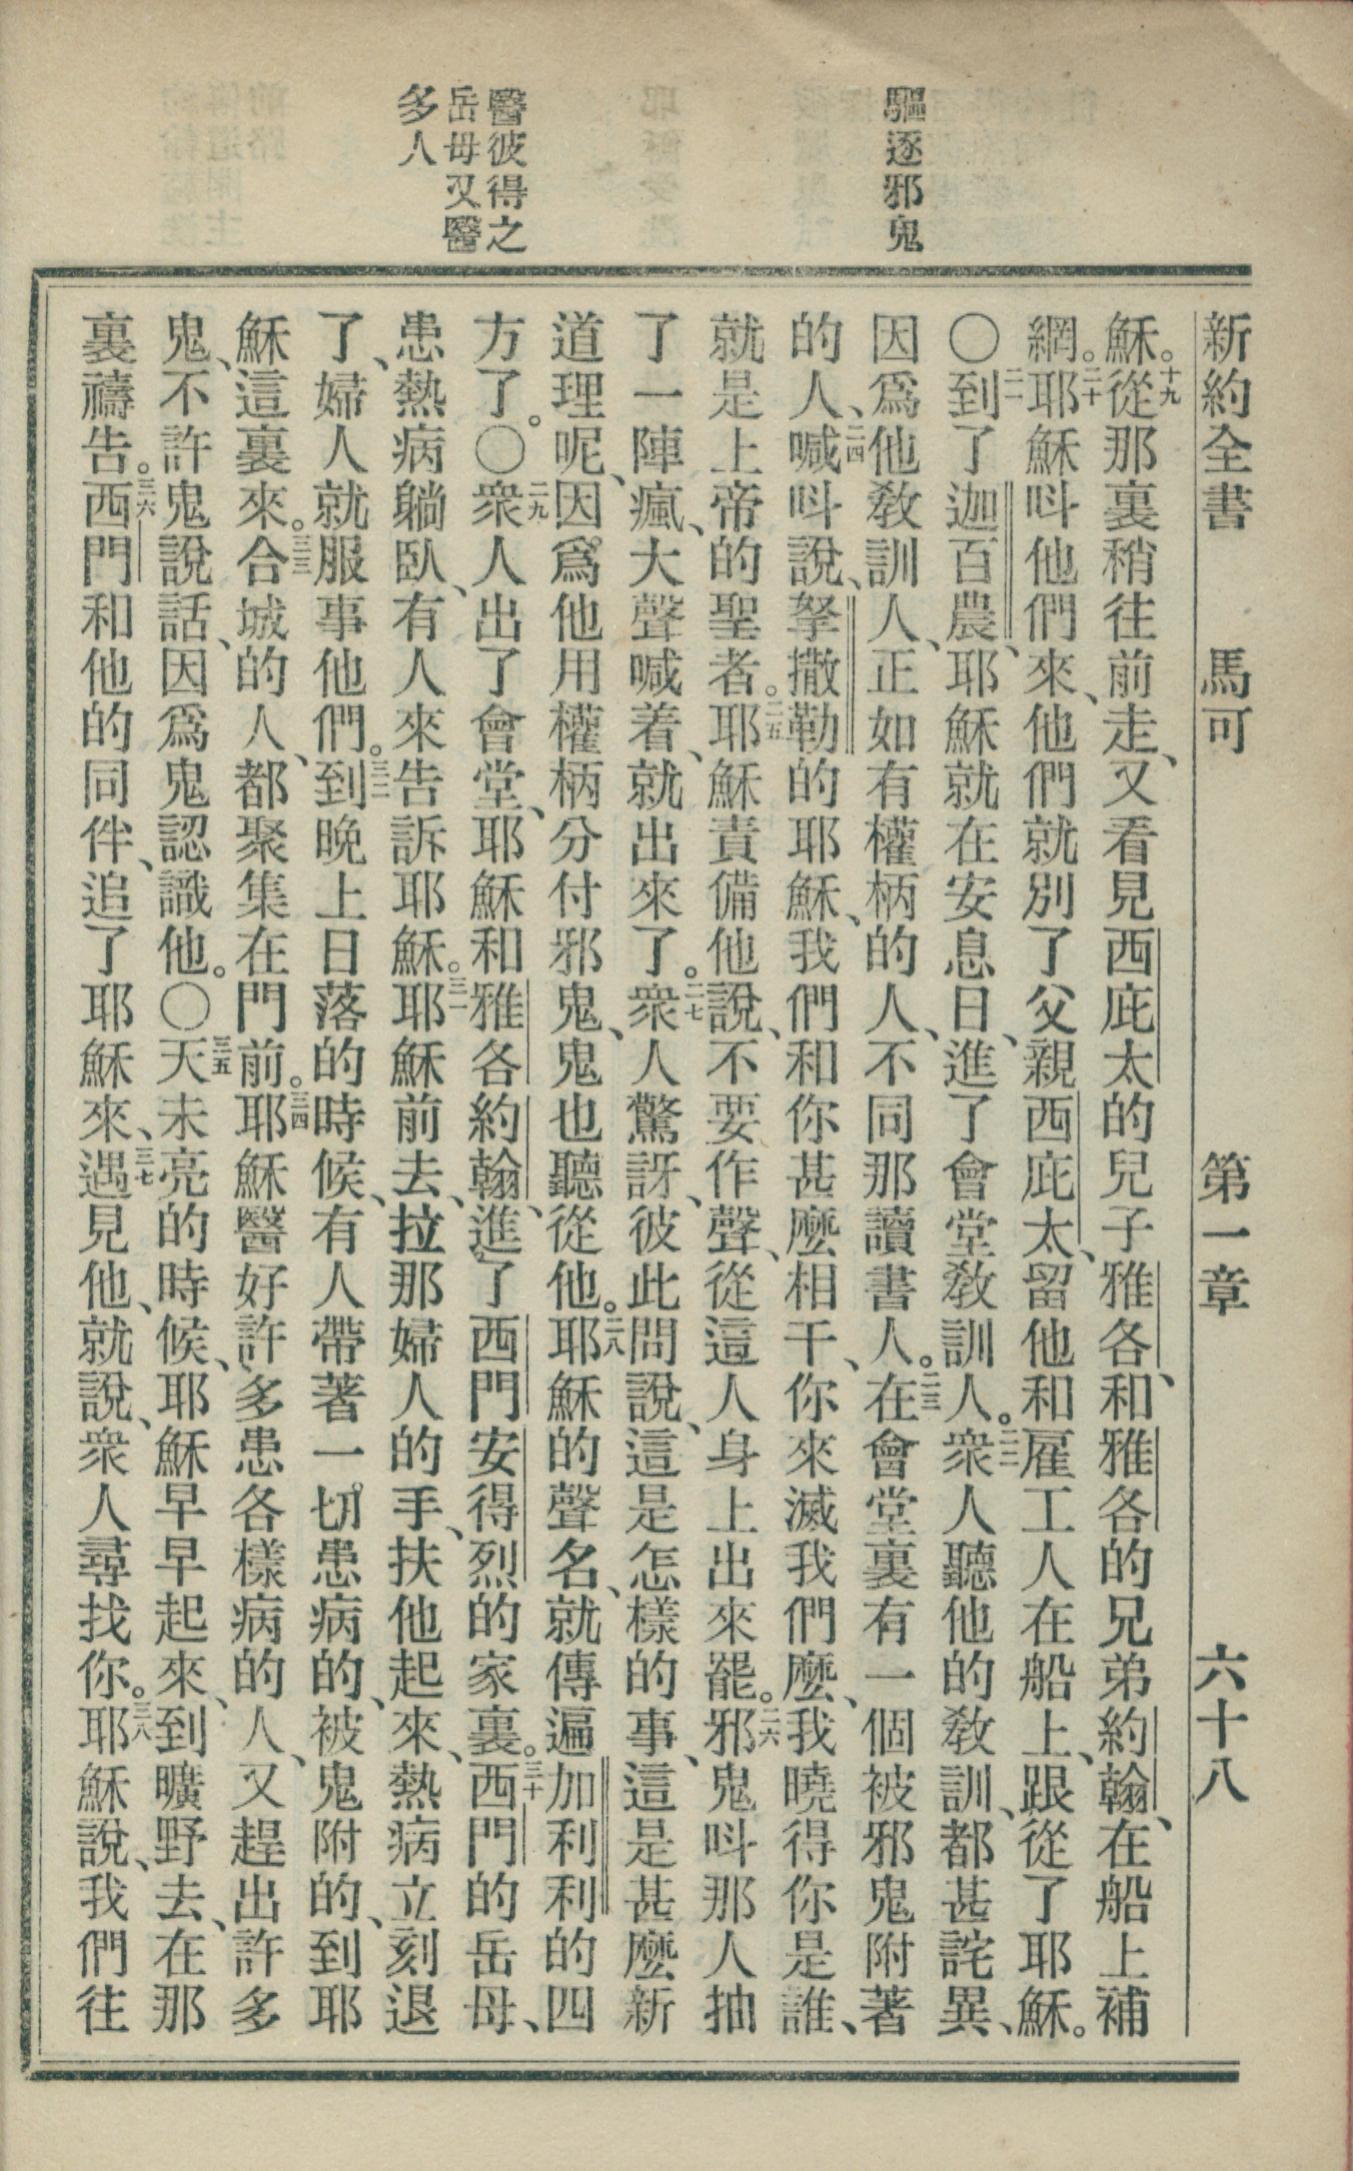 驅逐邪鬼
醫彼得之
岳母又醫
多人
新約全書 馬可 第一章 六十八
穌。十九從那裏稍往前走、又看見西庇太的兒子雅各、和雅各的兄弟約翰、在船上補
網。二十耶穌呌他們來、他們就別了父親西庇太、留他和雇工人在船上、跟從了耶穌。
〇二一到了迦百農、耶穌就在安息日、進了會堂教訓人。二二衆人聽他的教訓、都甚詫異、
因爲他教訓人、正如有權柄的人、不同那讀書人。二三在會堂裏有一個被邪鬼附著
的人、二四喊呌說、拏撒勒的耶穌、我們和你甚麼相干、你來滅我們麼、我曉得你是誰、
就是上帝的聖者。二五耶穌責備他說、不要作聲、從這人身上出來罷。二六邪鬼呌那人抽
了一陣瘋、大聲喊着、就出來了。二七衆人驚訝、彼此問說、這是怎樣的事、這是甚麼新
道理呢、因爲他用權柄分付邪鬼、鬼也聽從他。二八耶穌的聲名、就傳遍加利利的四
方了。〇二九衆人出了會堂、耶穌和雅各約翰、進了西門安得烈的家裏。三十西門的岳母、
患熱病躺臥、有人來告訴耶穌。三一耶穌前去、拉那婦人的手、扶他起來、熱病立刻退
了、婦人就服事他們。三二到晚上日落的時候、有人帶著一切患病的、被鬼附的、到耶
穌這裏來。三三合城的人、都聚集在門前。三四耶穌醫好許多患各樣病的人、又趕出許多
鬼、不許鬼說話、因爲鬼認識他。〇三五天未亮的時候、耶穌早早起來、到曠野去、在那
裏禱告。三六西門和他的同伴、追了耶穌來、三七遇見他、就說、衆人尋找你。三八耶穌說、我們往